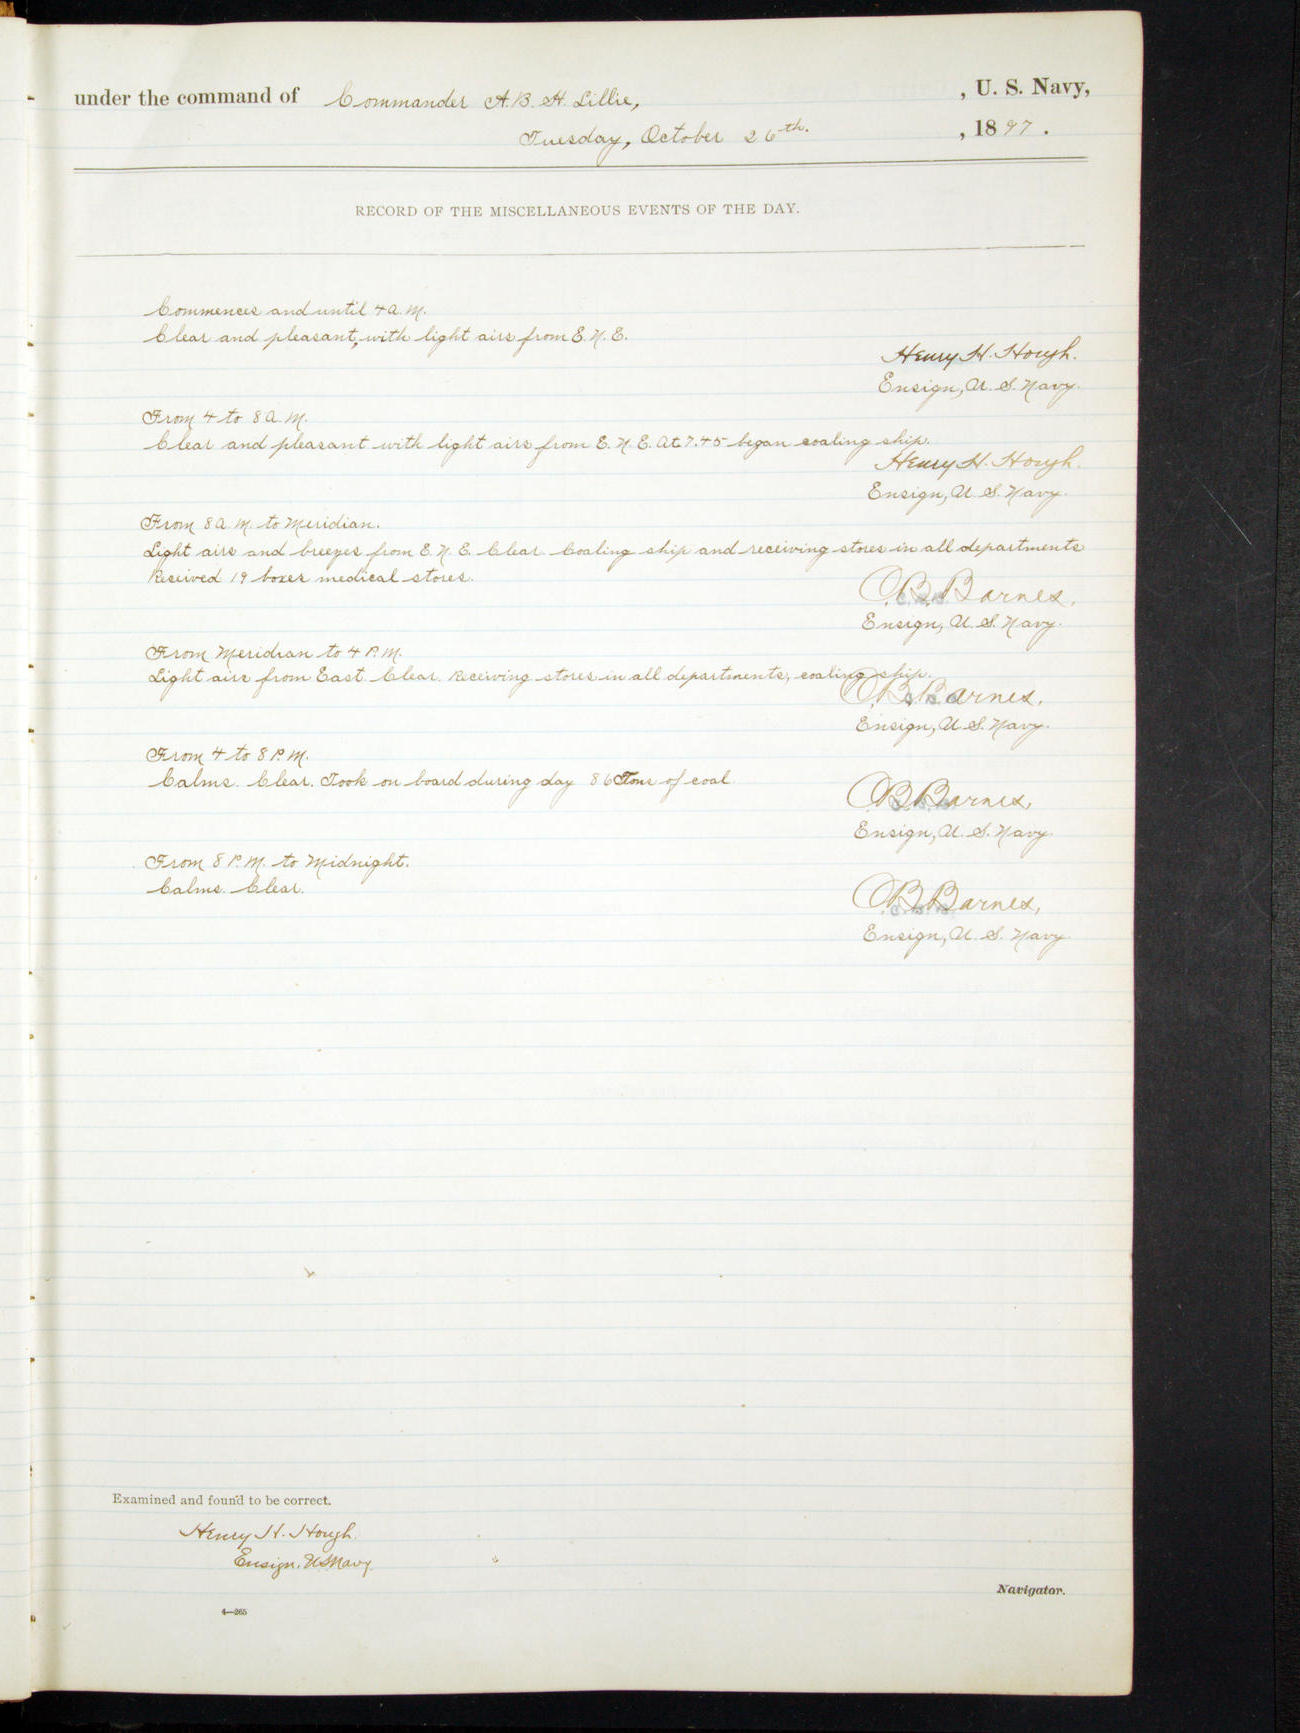 under the command of Commander A. B. H. Lillie, , U. S. Navy,
Tuesday, October 26th. , 1897.
RECORD OF THE MISCELLANEOUS EVENTS OF THE DAY.
Commences and until 4 A. M.
Clear and pleasant, with light airs from E. N. E.
Henry H. Hough.
Ensign, U. S. Navy.
From 4 to 8 A. M.
Clear and pleasant with light airs from E. N. E. At 7.45 began coaling ship.
Henry H. Hough.
Ensign, U. S. Navy.
From 8 A. M. to Meridian.
Light airs and breezes from E. N. E. Clear. Coaling ship and receiving stores in all departments
Received 19 boxes medical stores.
C. B. Barnes,
Ensign, U. S. Navy.
From Meridian to 4 P. M.
Light airs from East. Clear. Receiving stores in all departments, coaling ship.
C. B. Barnes,
Ensign, U. S. Navy.
From 4 to 8 P. M.
Calms. Clear. Took on board during day 86 Tons of coal
C. B. Barnes,
Ensign, U. S. Navy.
From 8 P. M. to Midnight.
Calms. Clear.
C. B. Barnes,
Ensign, U. S. Navy.
Examined and found to be correct.
Henry H. Hough.
Ensign. U.S. Navy.
Navigator.
4—265